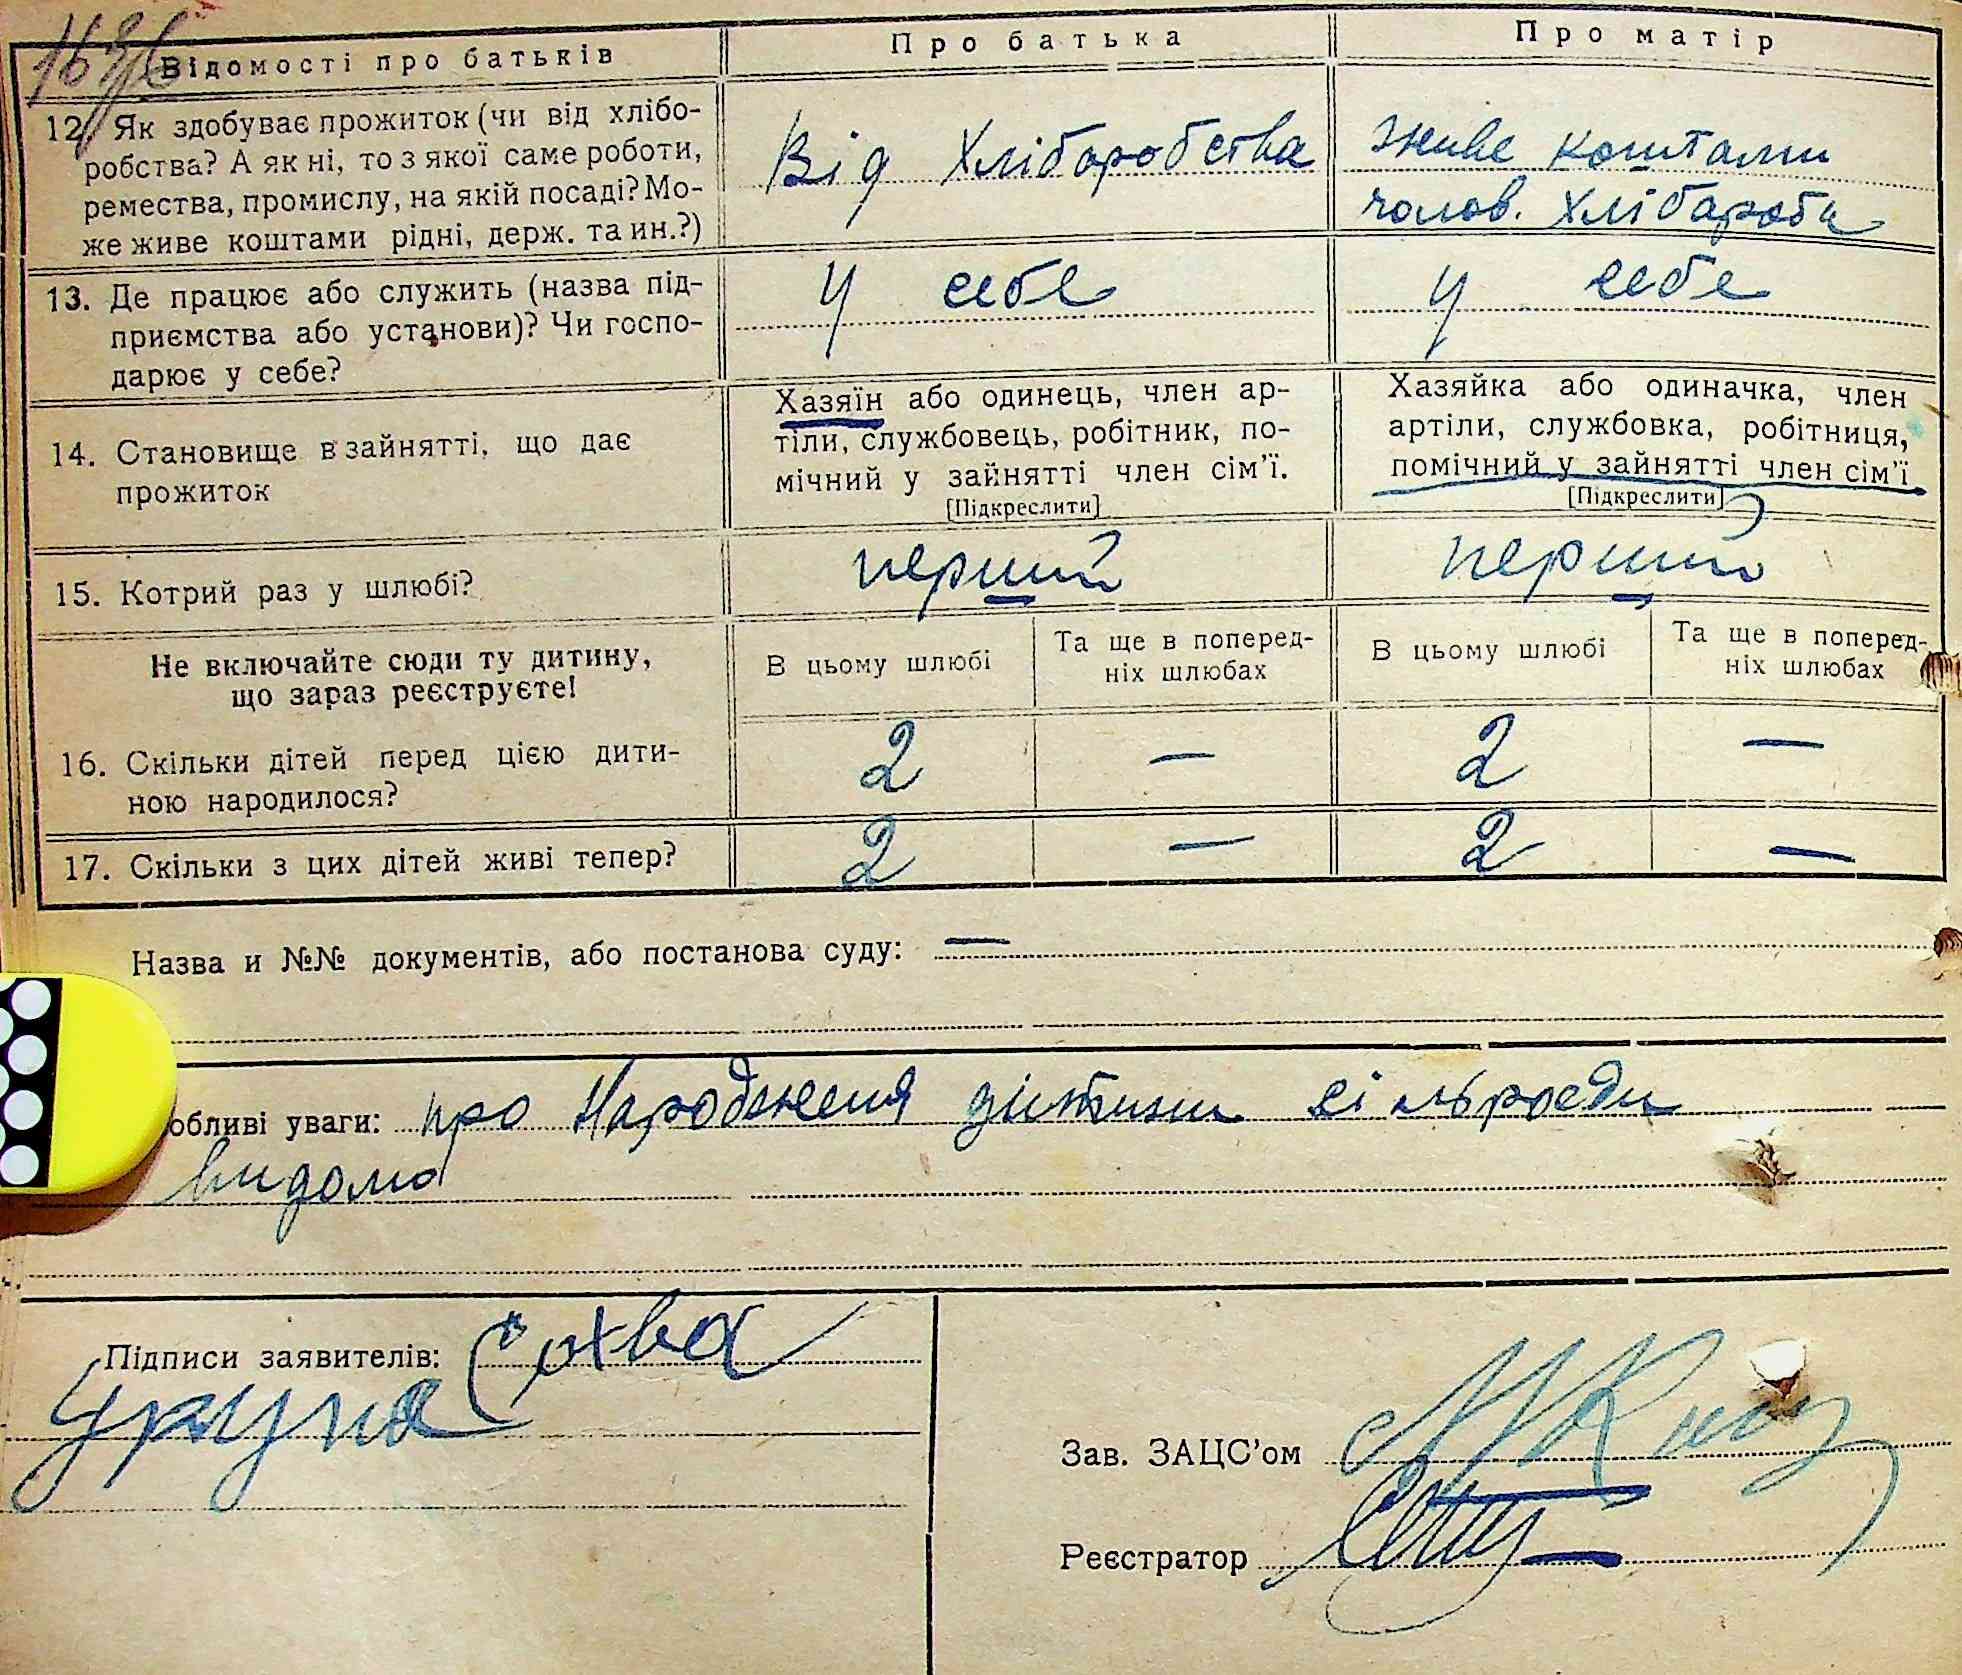 Відомості про батьків
Про батька
Про матір
12. Як здобуває прожиток (чи від хлібо-
робства? А як ні, то з якої саме роботи,
ремества, промислу, на якій посаді? Мо-
же живе коштами рідні, держ. та ин.?)
Від Хліборобства
живе коштами
чолов. Хлібароба
13. Де працює або служить (назва під-
приємства або установи)? Чи госпо-
дарює у себе?
У себе
У себе
14. Становище в зайнятті, що дає
прожиток
Хазяїн або одинець, член ар-
тіли, службовець, робітник, по-
мічний у зайнятті член сім'ї.
[Підкреслити]
Хазяйка або одиначка, член
артіли, службовка, робітниця,
помічний у зайнятті член сім'ї
[Підкреслити]
15. Котрий раз у шлюбі?
перший
перший
Не включайте сюди ту дитину,
що зараз реєструєте!
В цьому шлюбі
Та ще в поперед-
ніх шлюбах
В цьому шлюбі
Та ще в поперед-
ніх шлюбах
16. Скільки дітей перед цією дити-
ною народилося?
2 — 2 —
17. Скільки з цих дітей живі тепер?
2 — 2 —
Назва и №№ документів, або постанова суду: —
обливі уваги: про Народження дитини сільроди
видомо
Підписи заявителів:
Зав. ЗАЦС'ом
Реєстратор